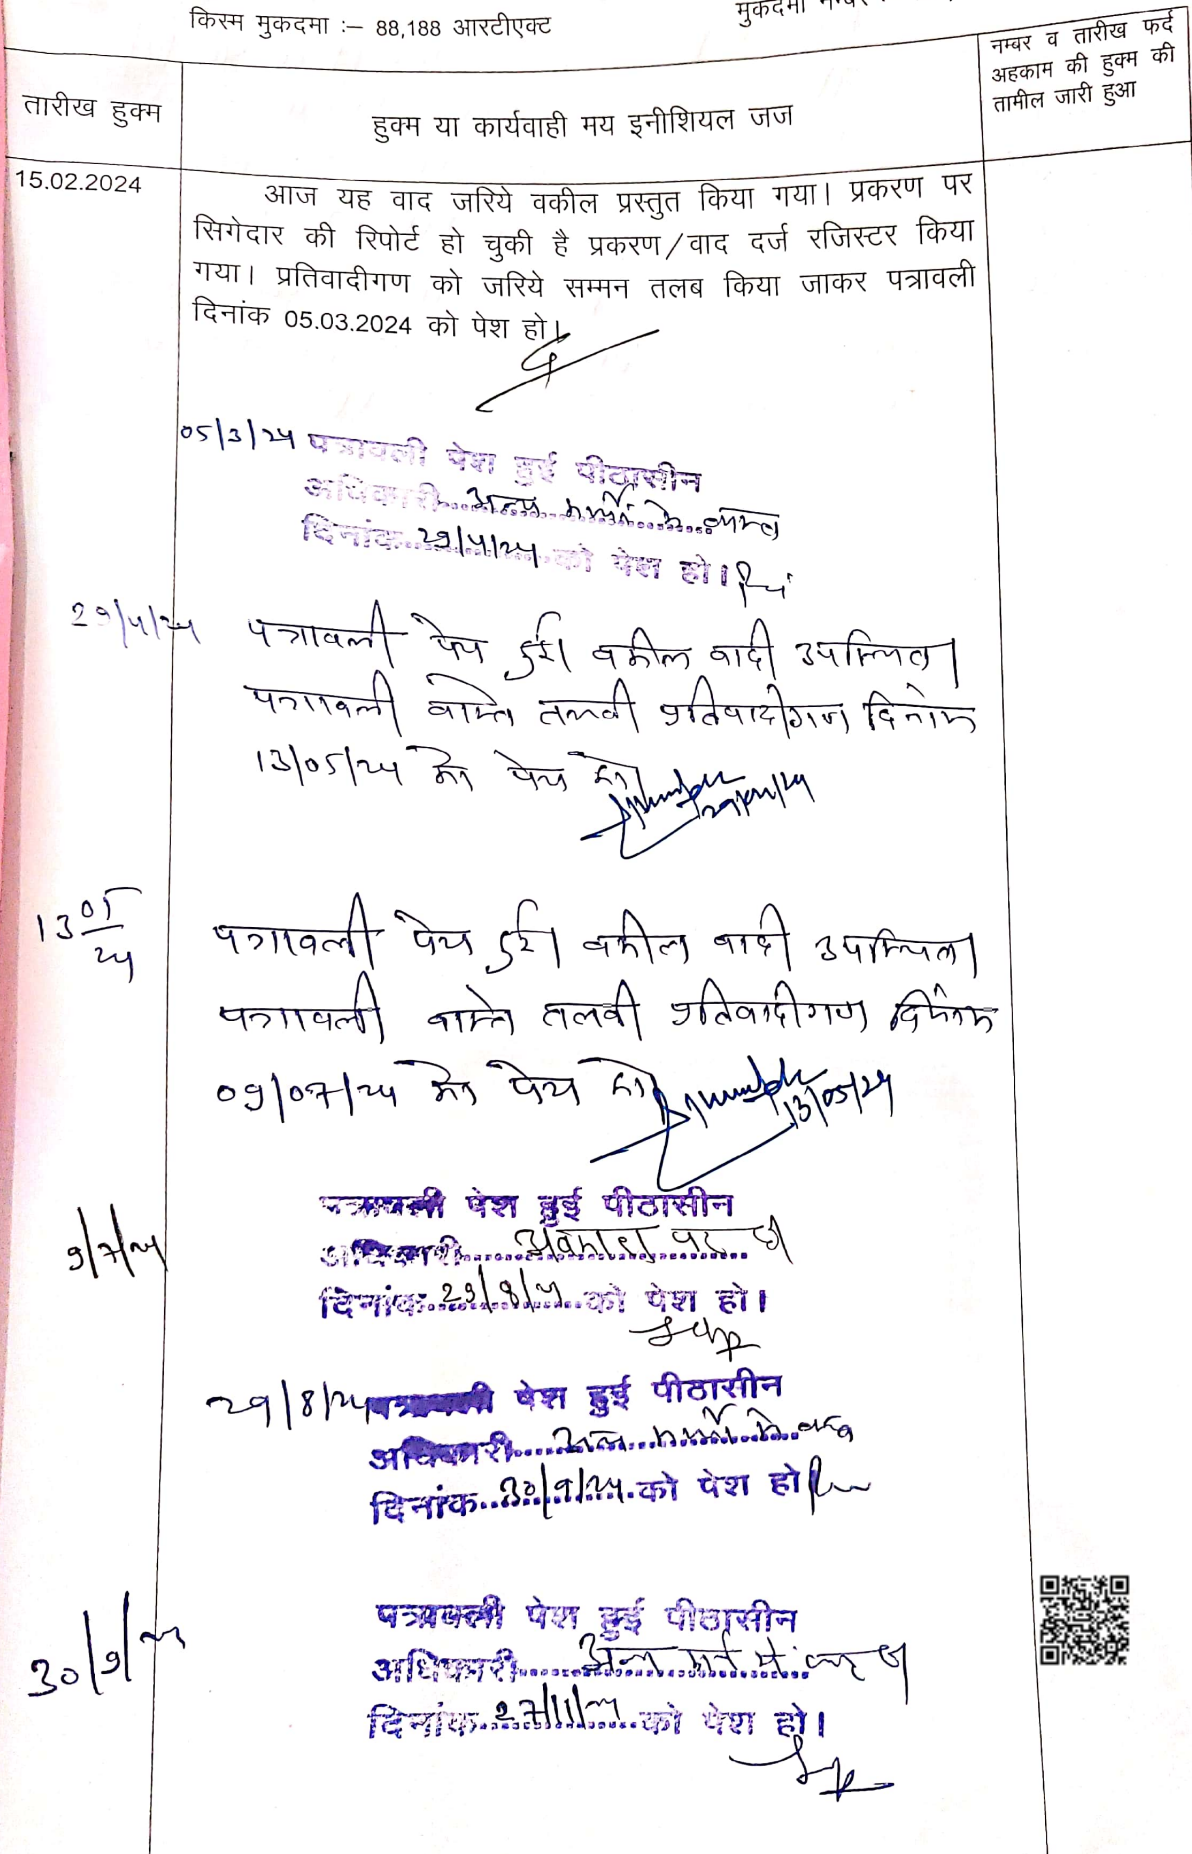 किस्म मुकदमा :– 88,188 आरटीएक्ट
मुकदमा
तारीख हुक्म
हुक्म या कार्यवाही मय इनीशियल जज
नम्बर व तारीख फर्द
अहकाम की हुक्म की
तामील जारी हुआ
15.02.2024
आज यह वाद जरिये वकील प्रस्तुत किया गया। प्रकरण पर
सिगेदार की रिपोर्ट हो चुकी है प्रकरण/वाद दर्ज रजिस्टर किया
गया। प्रतिवादीगण को जरिये सम्मन तलब किया जाकर पत्रावली
दिनांक 05.03.2024 को पेश हो।
05/3/24 पत्रावली पेश हुई पीठासीन
अधिकारी अन्य कार्यों में व्यस्त
दिनांक 29/4/24 को पेश हो।
29/4/24 पत्रावली पेश हुई। वकील वादी उपस्थित।
पत्रावली वास्ते तलबी प्रतिवादीगण दिनांक
13/05/24 को पेश हो।
29/04/24
13/05/24 पत्रावली पेश हुई। वकील वादी उपस्थित।
पत्रावली वास्ते तलबी प्रतिवादीगण दिनांक
09/07/24 को पेश हो।
13/05/24
9/7/24 पत्रावली पेश हुई पीठासीन
अधिकारी अवकाश पर है।
दिनांक 29/8/24 को पेश हो।
29/8/24 पत्रावली पेश हुई पीठासीन
अधिकारी अन्य कार्यों में व्यस्त
दिनांक 30/9/24 को पेश हो।
30/9/24 पत्रावली पेश हुई पीठासीन
अधिकारी अन्य कार्य में व्यस्त
दिनांक 27/11/24 को पेश हो।